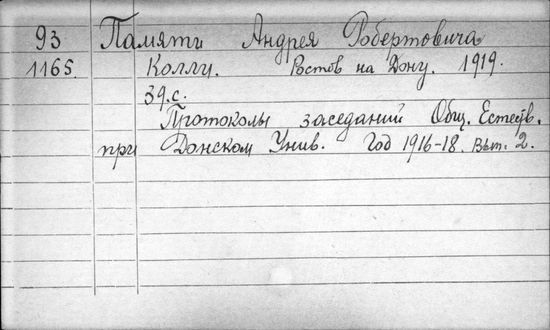 93 Памяти Андрея Робертовича
1165. Коллу. Ростов на Дону. 1919.
39.с.
Протоколы заседаний Общ. Естеств.
при Донском Унив. Год 1916-18. Вып. 2.